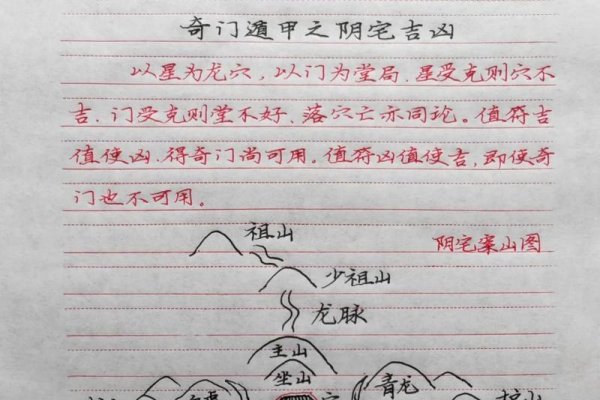 奇门遁甲之阴宅吉凶
以星为龙穴，以门为堂局，星受克则穴不
吉，门受克则堂不好、落穴亡亦同论。值符吉
值使凶，得奇门尚可用。值符凶值使吉，即使奇
门也不可用。
祖山
阴宅案山图
少祖山
龙脉
主山
坐山
青龙
白虎
穴